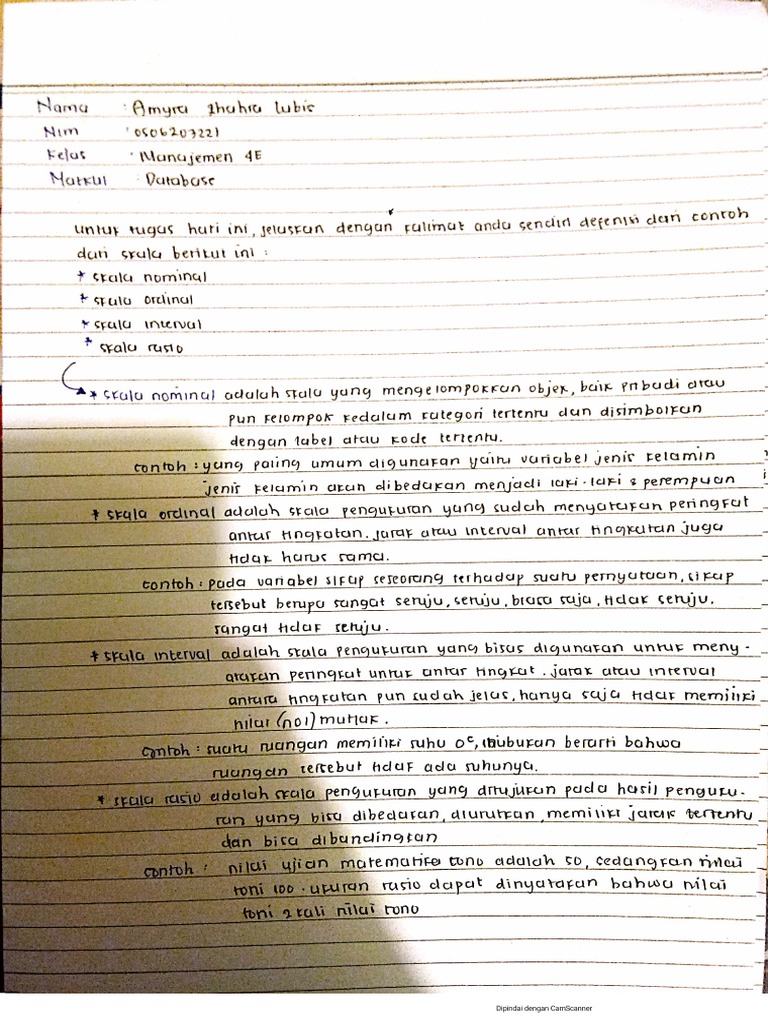 Nama : Amyra Zhahra Lubis
Nim : 0506203221
Kelas : Manajemen 4E
Matkul : Database
untuk tugas hari ini, jelaskan dengan kalimat anda sendiri defenisi dan contoh
dari skala berikut ini :
* skala nominal
* skala ordinal
* skala interval
* skala rasio
* skala nominal adalah skala yang mengelompokkan objek, baik pribadi atau
pun kelompok kedalam kategori tertentu dan disimbolkan
dengan label atau kode tertentu.
contoh : yang paling umum digunakan yaitu variabel jenis kelamin
jenis kelamin akan dibedakan menjadi laki-laki & perempuan
* skala ordinal adalah skala pengukuran yang sudah menyatakan peringkat
antar tingkatan. jarak atau interval antar tingkatan juga
tidak harus sama.
contoh : pada variabel sikap seseorang terhadap suatu pernyataan, sikap
tersebut berupa sangat setuju, setuju, biasa saja, tidak setuju,
sangat tidak setuju.
* skala interval adalah skala pengukuran yang bisas digunakan untuk meny-
atakan peringkat untuk antar tingkat. jarak atau interval
antara tingkatan pun sudah jelas, hanya saja tidak memiliki
nilai (nol) mutlak.
contoh : suatu ruangan memiliki suhu 0°C, itubukan berarti bahwa
ruangan tersebut tidak ada suhunya.
* skala rasio adalah skala pengukuran yang ditujukan pada hasil penguku-
ran yang bisa dibedakan, diurutkan, memiliki jarak tertentu
dan bisa dibandingkan
contoh : nilai ujian matematika tono adalah 50, sedangkan nilai
toni 100. ukuran rasio dapat dinyatakan bahwa nilai
toni 2 kali nilai tono
Dipindai dengan CamScanner